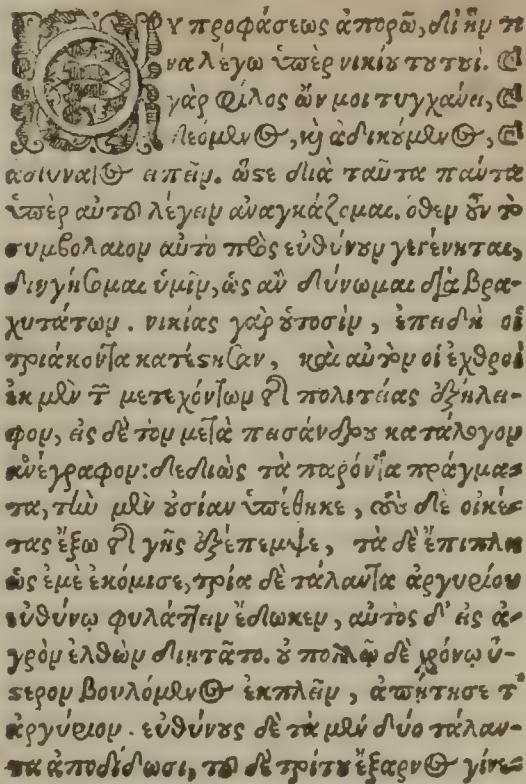 Οὐ προφάσεως ἀπορῶ, δι ἣν τι
να λέγω ὑπὲρ νικίου τουτουί. καὶ
γὰρ φίλος ὤν μοι τυγχάνει, καὶ
δεόμενος, καὶ ἀδικούμενος, καὶ
ἀδύνατος εἰπεῖν. ὥστε διὰ ταῦτα πάντα
ὑπὲρ αὐτοῦ λέγειν ἀναγκάζομαι. ὅθεν οὖν τὸ
συμβόλαιον αὐτῷ πρὸς εὐθύνουν γεγένηται,
διηγήσομαι ὑμῖν, ὡς ἂν δύνωμαι διὰ βρα-
χυτάτων. νικίας γὰρ οὑτοσὶν, ἐπειδὴ οἱ
τριάκοντα κατέστησαν, καὶ αὐτὸν οἱ ἐχθροὶ
ἐκ μὲν τῶν μετεχόντων τῆς πολιτείας ἐξήλει-
φον, εἰς δὲ τὸν μετὰ πεισάνδρου κατάλογον
ἀνέγραφον: δεδιὼς τὰ παρόντα πράγμα-
τα, τὴν μὲν οὐσίαν ὑπέθηκε, τοὺς δὲ οἰκέ-
τας ἔξω τῆς γῆς ἐξέπεμψε, τὰ δὲ ἔπιπλα
ὡς ἐμὲ ἐκόμισε, τρία δὲ τάλαντα ἀργυρίου
εὐθύνῳ φυλάττειν ἔδωκεν, αὐτὸς δ' εἰς ἀ-
γρὸν ἐλθὼν διῃτᾶτο. οὐ πολλῷ δὲ χρόνῳ ὕ-
στερον βουλόμενος ἐκπλεῖν, ἀπῄτησε τ'
ἀργύριον. εὐθύνους δὲ τὰ μὲν δύο τάλαν-
τα ἀποδίδωσι, τοῦ δὲ τρίτου ἔξαρνος γίνε-